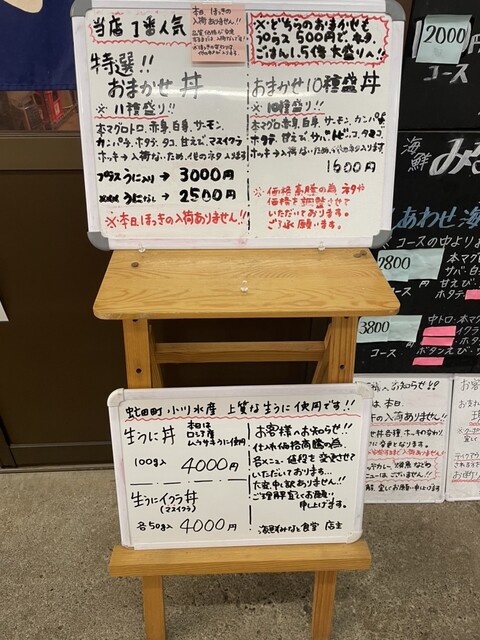 当店1番人気
本日、ほっきの
入荷ありません!!
特選!!
おまかせ丼
※11種盛り!!
本マグロトロ、赤身、白身、サーモン、
カンパチ、ホタテ、タコ、甘エビ、マスイクラ
ホッキ→入荷ないため、他のネタ入ります
プラスうに入り→3000円
うになし→2500円
※本日ほっきの入荷ありません!!
※どちらのおまかせも
プラス500円で、ネタ、
ごはん1.5倍大盛りへ!!
おまかせ10種盛丼
※10種盛り!!
本マグロ赤身、白身、サーモン、カンパチ
ホタテ、甘エビ、サバ、トビコ、タマゴ、
ホッキ→入荷ないため、他のネタ入ります
1600円
※価格高騰の為ネタや
価格を調整させて
いただいております。
ご了承願います。
小川水産 上質な生うに使用です!!
生うに丼
本日は
ロシア産
ムラサキうに使用
100g入 4000円
生うにイクラ丼
(マスイクラ)
各50g入 4000円
お客様へお知らせ!!
仕入れ価格高騰の為、
各メニュー値段を変更させて
いただいております…
大変、申し訳ありません!!
ご理解宜しくお願い
申し上げます。
海鮮みなと食堂 店主
2000
コース
海鮮
しあわせ海
コースの中より
2800
円
本マグ
サバ・白
甘えび
ホタテ
3800
コース
円
中トロ・本マ
イクラ
ボタンエビ・
へお知らせ!!
は、本日、
の入荷ありません!!
宜しくお願い申し上げます